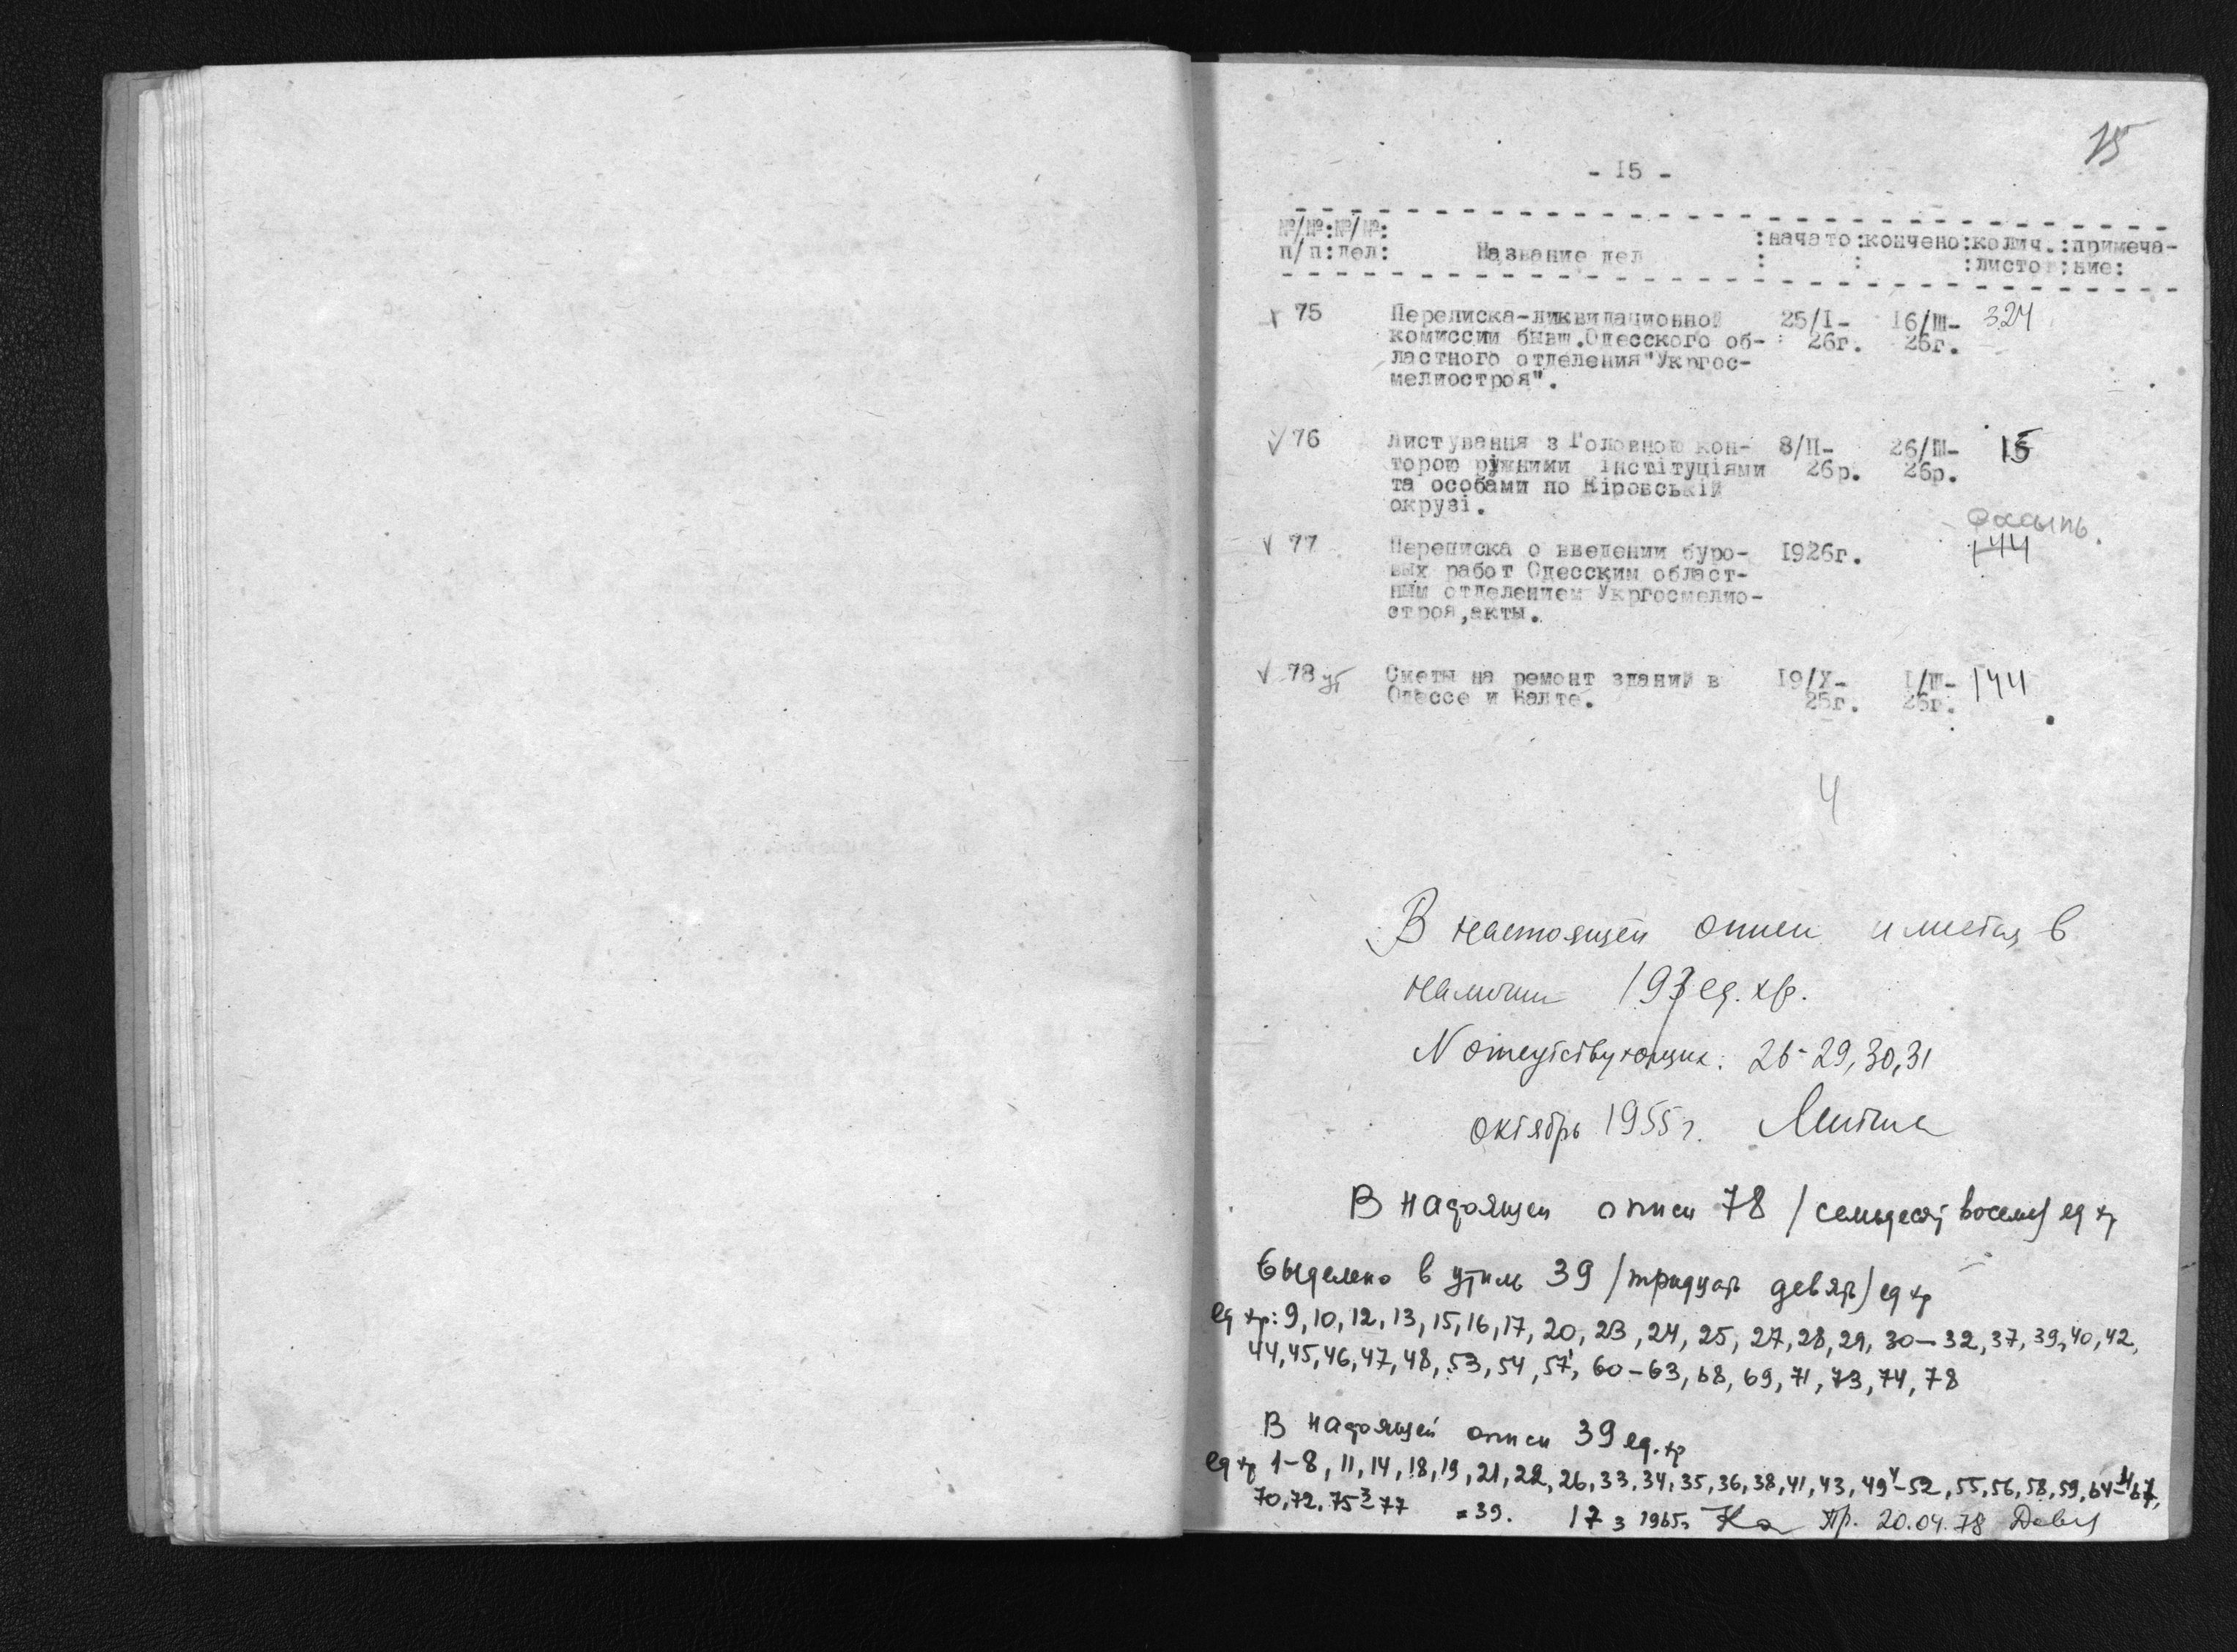 15
- I5 -
№/№:№/№: :начато:кончено:колич.:примеча-
п/п:дел: Название дел : : :листо :ние:
75 Переписка-ликвидационной 25/I- I6/Ш- 324
комиссии бывш.Одесского об- 26г. 26г.
ластного отделения"Укргос-
мелиостроя".
76 Листування з Головною кон- 8/П- 26/Ш- 15
торою ріжними інстітуціями 26р. 26р.
та особами по Кіровській
окрузі.
россыпь.
77 Переписка о введении буро- I926г. 144
вых работ Одесским област-
ным отделением Укргосмелио-
строя,акты.
78 ут Сметы на ремонт зданий в I9/Х- I/Ш- 144
Одессе и Балте. 25г. 26г.
4
В настоящей описи имеется в
наличии 193 ед. хр.
N отсутствующих: 26-29, 30, 31
октябрь 1955 г.
В настоящей описи 78 /семьдесят восемь/ ед хр
Выделено в утиль 39 /тридцать девять/ ед хр
ед хр: 9, 10, 12, 13, 15, 16, 17, 20, 23, 24, 25, 27, 28, 29, 30-32, 37, 39, 40, 42,
44, 45, 46, 47, 48, 53, 54, 57, 60-63, 68, 69, 71, 73, 74, 78
В настоящей описи 39 ед. хр
ед хр 1-8, 11, 14, 18, 19, 21, 22, 26, 33, 34, 35, 36, 38, 41, 43, 49-52, 55, 56, 58, 59, 64-67,
70, 72, 75-77 = 39. 17 3 1965г Пр. 20.04.78